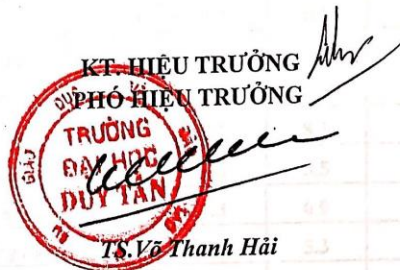 KT. HIỆU TRƯỞNG
PHÓ HIỆU TRƯỞNG
TRƯỜNG
ĐẠI HỌC
DUY TÂN
TS.Võ Thanh Hải